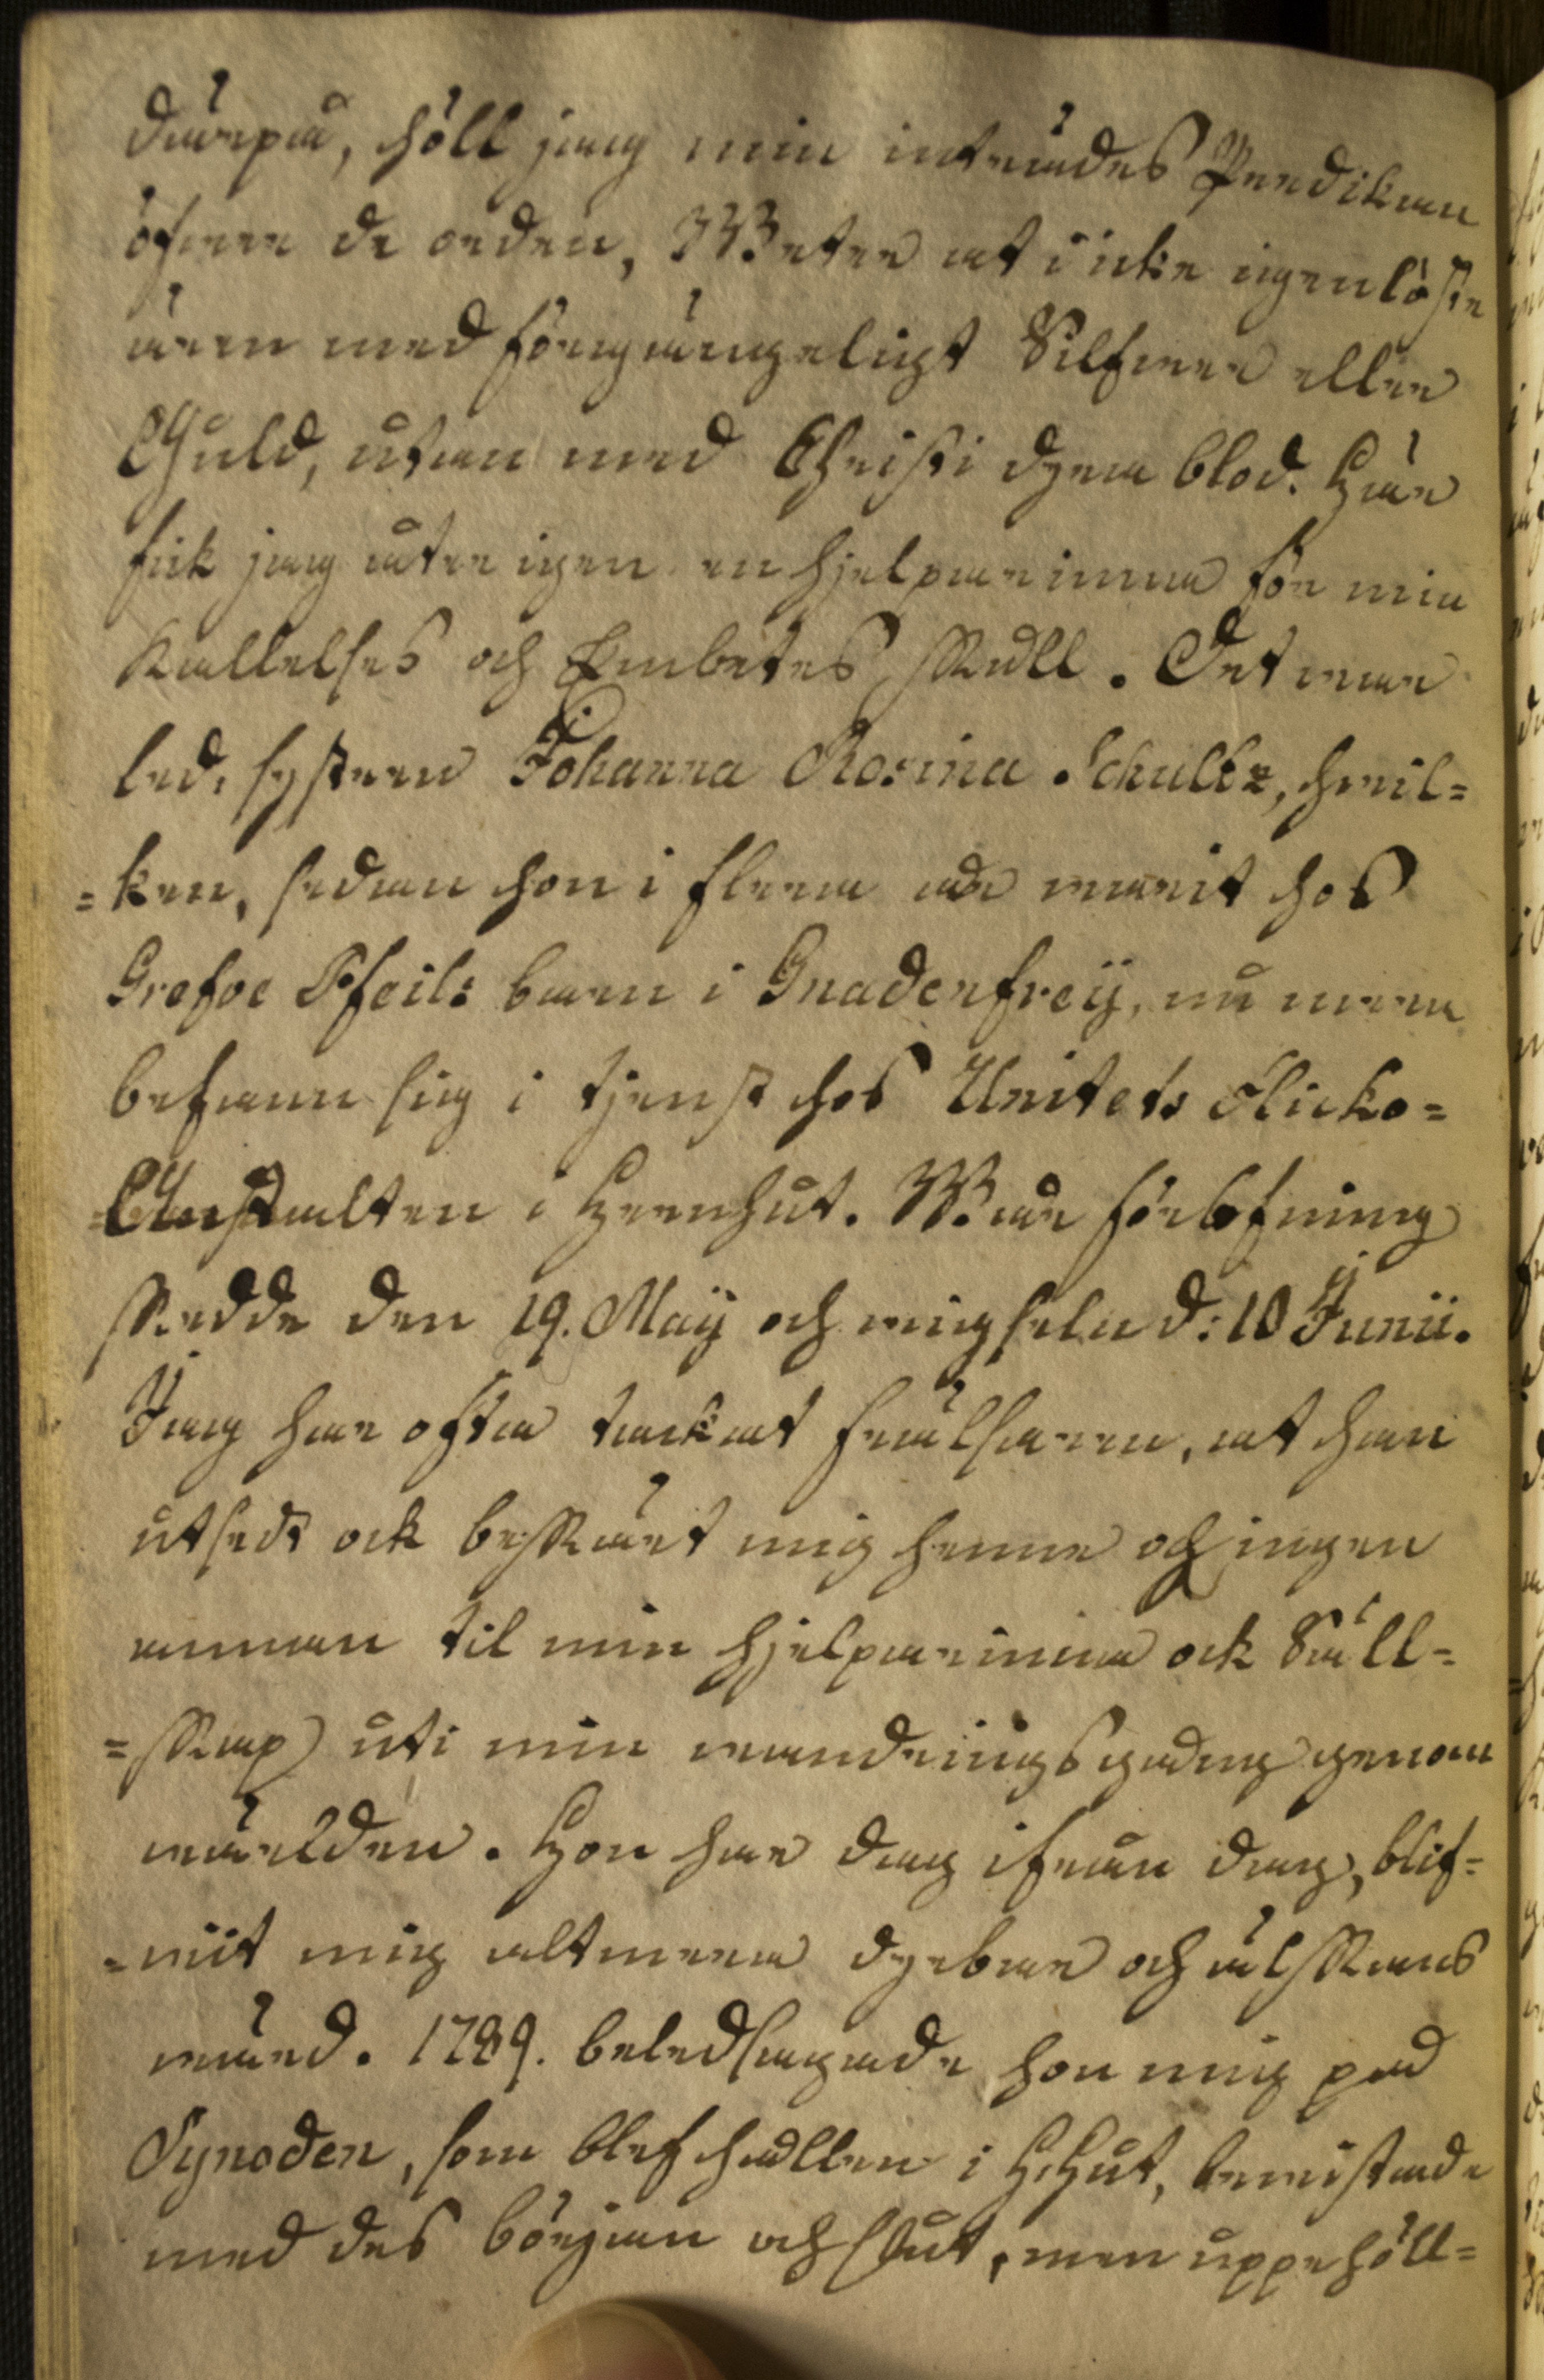 därpå, höll jag min inträdes Predikan
öfwer de orden, Weter at i icke igenlöste
ären med förgängeligt Silfwer eller
Guld, utan med Christi dyra blod. Här
fick jag åter igen en hjelparinna för min
Kallelses och Embetes skull. Det war
led. systern Johanna Rosina Schultz, hwil=
=ken, sedan hon i flera år warit hos
Grefve Pfeils barn i Gnadenfreÿ, nu mera
befann sig i tjenst hos Unitets Flicko=
=Anstalten i Herrnhut. Wår förlofning
skedde den 19. Maÿ och wigseln d: 10 Junii.
Jag har ofta tackat frälsaren, at han
utsedt ock beskärt mig henne och ingen
annan til min hjelparinna ock Säll=
=skap uti min wandringsgång genom
wärlden. Hon har dag ifrån dag, blif=
=wit mig altmera dyrbar och älskans
wärd. 1789. beledsagade hon mig på
Synoden, som blef hållen i Hhut, bewistade
med des början och slut, men uppehöll=